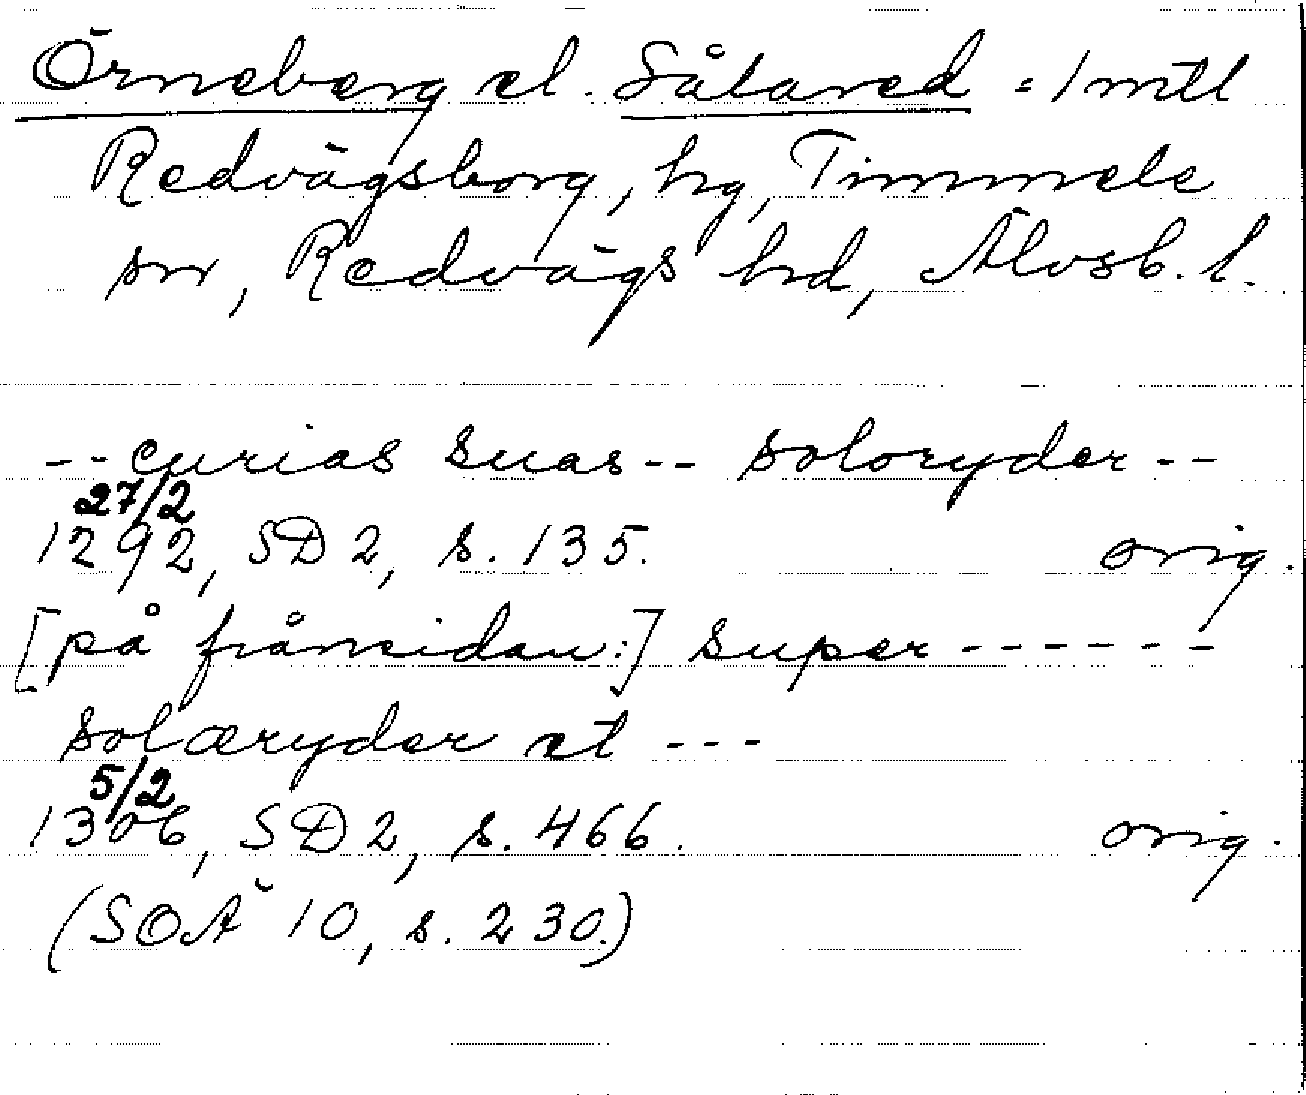 Örneberg el. Sålared = 1 mtl
Redvägsborg, hg, Timmele
sn, Redvägs hd, Älvsb. l.
-- curias suas -- soloryder --
27/2
1292, SD 2, s. 135. orig.
[på frånsidan:] super ------
solæryder et ---
5/2
1306, SD 2, s. 466. orig.
(SOÄ 10, s. 230.)